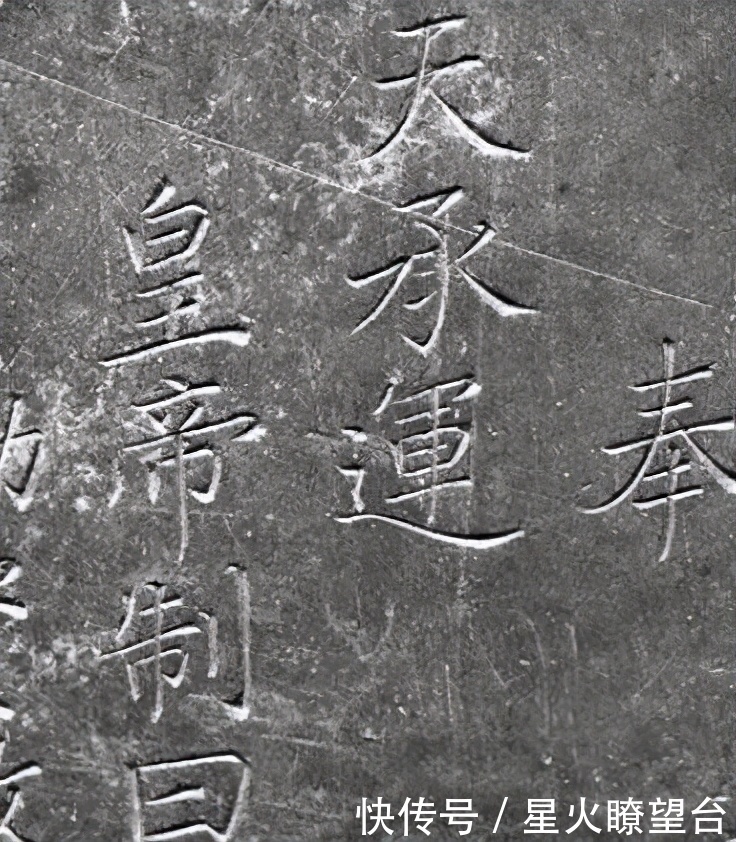 奉
天承運
皇帝制曰
快传号 / 星火瞭望台